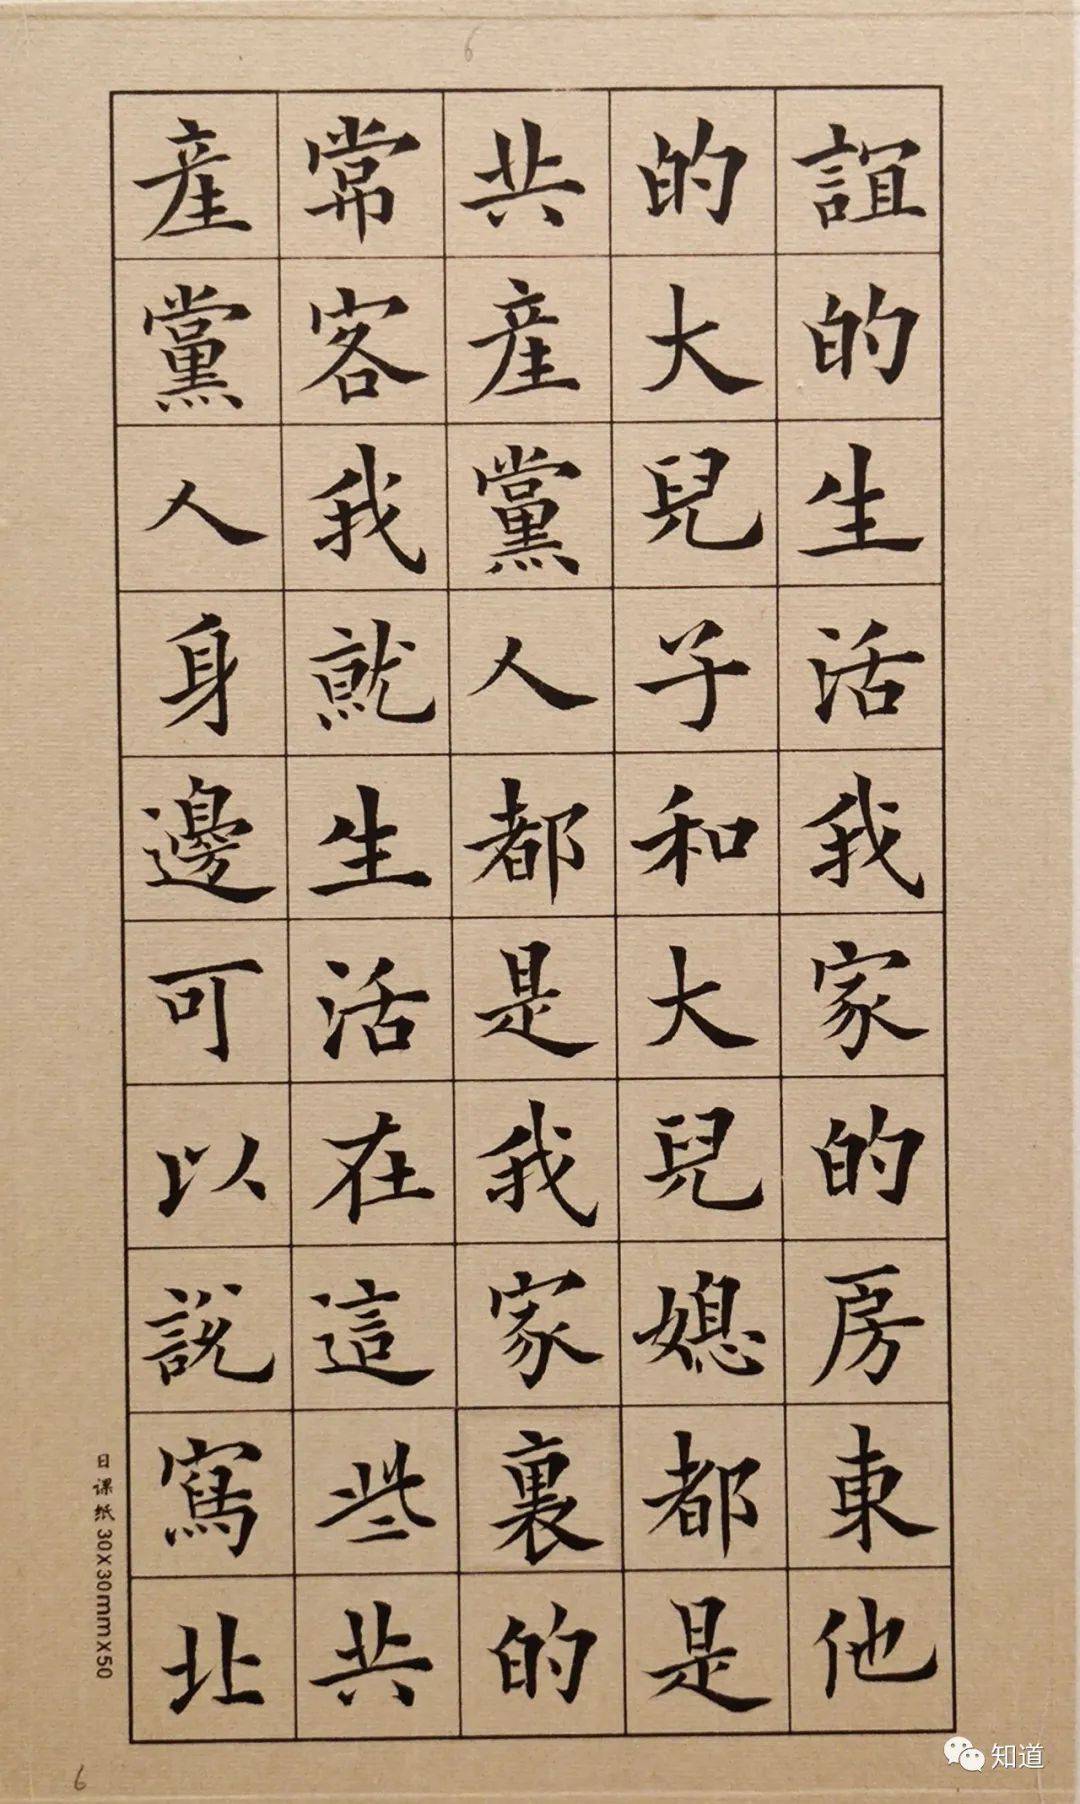 6
誼的生活我家的房東他
的大兒子和大兒媳都是
共產黨人都是我家裏的
常客我就生活在這些共
產黨人身邊可以說寫北
日课纸 30x30mm x50
6
知道